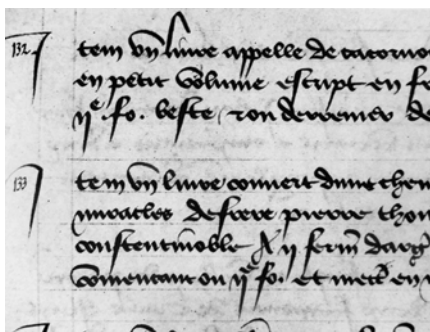 132. Item vng livre appelle de
en petit volume escript en
ije. fo. beste, et on derrenier de
133 Item vng livre couvert dune
miracles de frere pierre
constentinoble A ij ferm darg
Comencant ou ije fo. et mect en